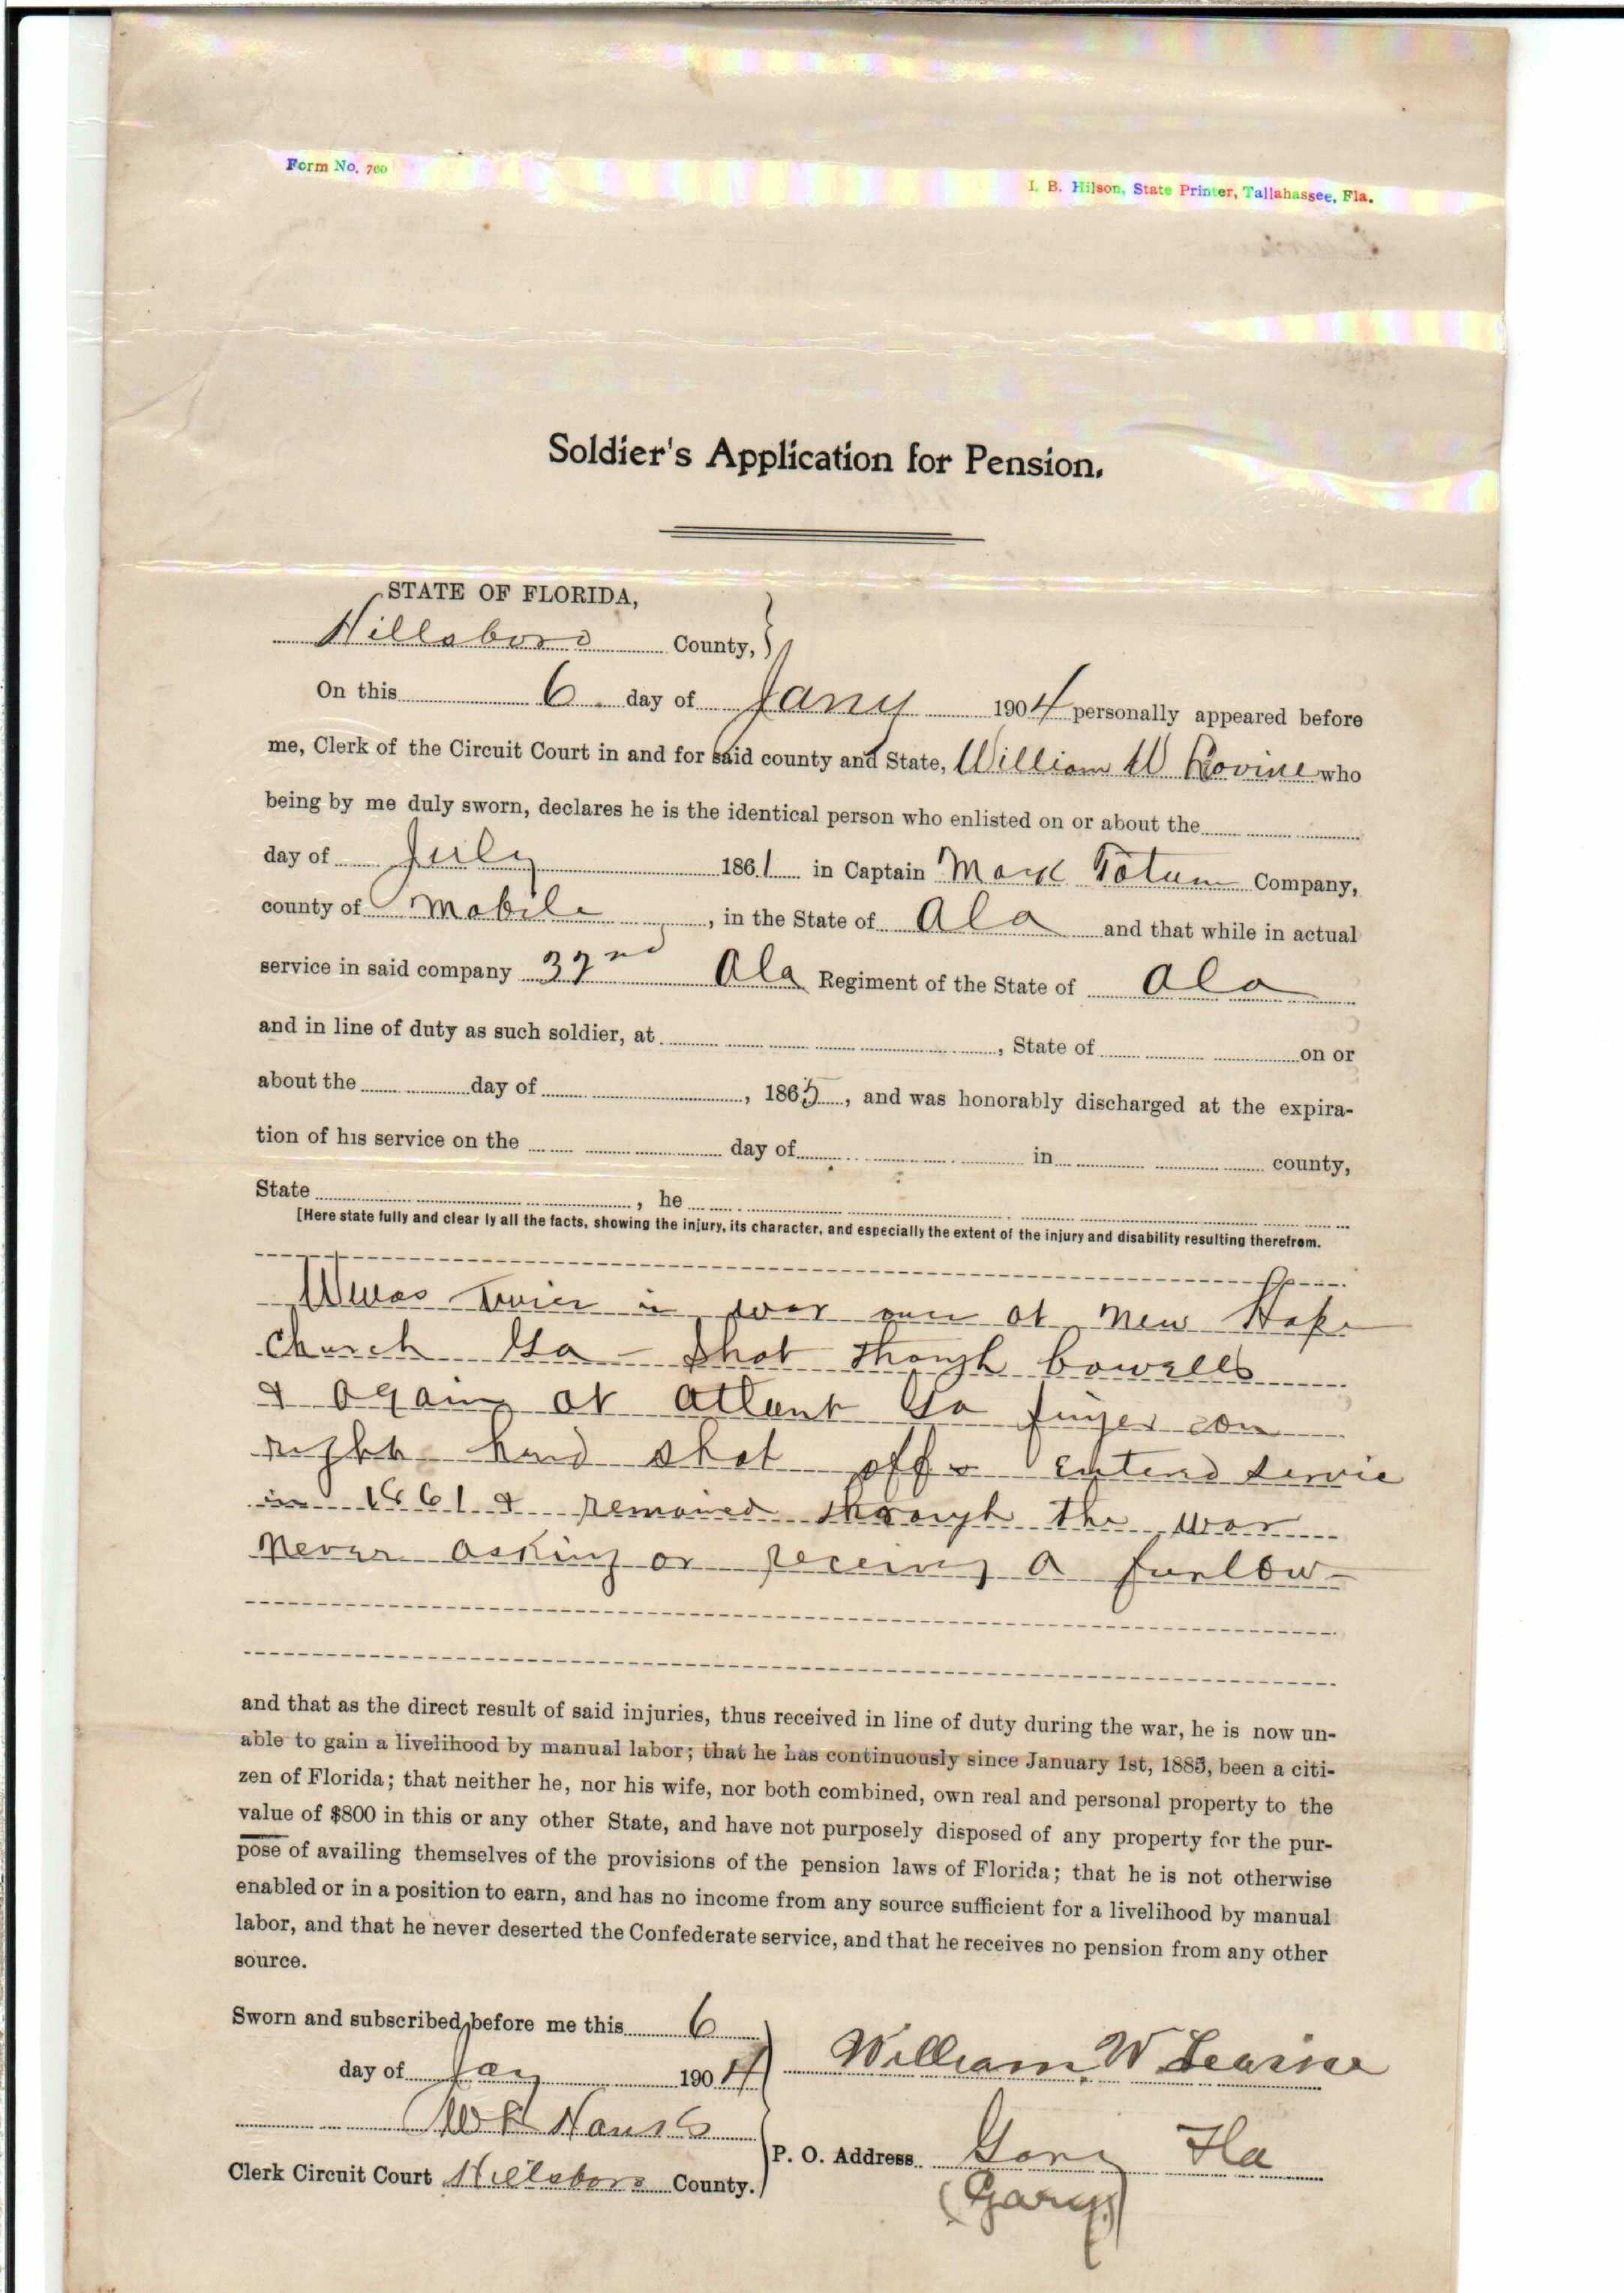 Form No. 760
I. B. Hilson, State Printer, Tallahassee, Fla.
Soldier's Application for Pension.
STATE OF FLORIDA,
Hillsboro County,
On this 6 day of Jany 1904 personally appeared before
me, Clerk of the Circuit Court in and for said county and State, William W who
being by me duly sworn, declares he is the identical person who enlisted on or about the
day of July 1861 in Captain Mark Tatum Company,
county of Mobile, in the State of Ala and that while in actual
service in said company 32nd Ala Regiment of the State of Ala
and in line of duty as such soldier, at , State of on or
about the day of , 1865, and was honorably discharged at the expira-
tion of his service on the day of in county,
State , he
[Here state fully and clear ly all the facts, showing the injury, its character, and especially the extent of the injury and disability resulting therefrom.
in war at New Hope
Church Ga - Shot though bowells
& again at Atlant Ga finger on
right hand shot off - Enterd Servic
in 1861 & remaind through the war
Never asking or receivg a furlow -
and that as the direct result of said injuries, thus received in line of duty during the war, he is now un-
able to gain a livelihood by manual labor; that he has continuously since January 1st, 1885, been a citi-
zen of Florida; that neither he, nor his wife, nor both combined, own real and personal property to the
value of $800 in this or any other State, and have not purposely disposed of any property for the pur-
pose of availing themselves of the provisions of the pension laws of Florida; that he is not otherwise
enabled or in a position to earn, and has no income from any source sufficient for a livelihood by manual
labor, and that he never deserted the Confederate service, and that he receives no pension from any other
source.
Sworn and subscribed before me this 6
day of Jany 1904
William W
Clerk Circuit Court Hillsboro County.
P. O. Address Gary Fla
(Gary)